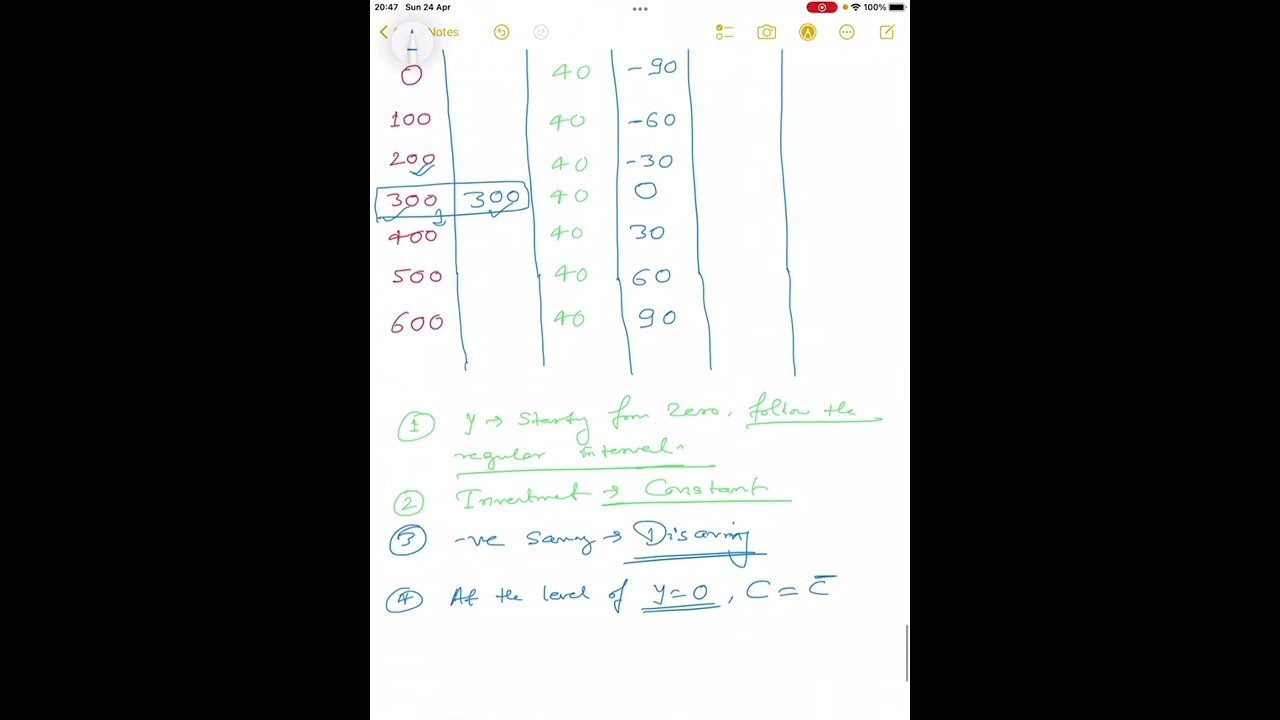 20:47 Sun 24 Apr 100%
Notes
0 40 -90
100 40 -60
200 40 -30
300 300 40 0
400 40 30
500 40 60
600 40 90
① y → Starty from zero, follow the
regular interval.
② Investment → Constant
③ -ve Saving → Disaving
④ At the level of y=0, C = C̅